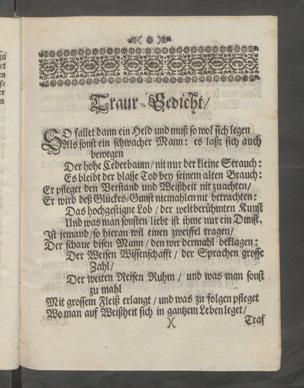 Traur-Gedicht/
SO fallet dann ein Held und muß so wol sich legen
Als sonst ein schwacher Mann: es laßt sich auch
bewegen
Der hohe Cederbaum/ nit nur der kleine Strauch:
Es bleibt der blasse Tod bey seinem alten Brauch:
Er pfleget den Verstand und Weißheit nit zuachten/
Er wird deß Glückes-Gunst niemahlen nit betrachten:
Das hochgestigne Lob/ der weltberühmten Kunst
Und was man sonsten liebt ist ihme nur ein Dunst.
Ist jemand/ so hieran will einen zweiffel tragen/
Der schaue disen Mann/ den wir dermahl beklagen:
Der Weisen Wissenschafft/ der Sprachen grosse
Zahl/
Der weiten Reisen Ruhm/ und was man sonst
zu mahl
Mit grossem Fleiß erlangt/ und was zu folgen pfleget
Wo man auf Weißheit sich in gantzem Leben leget/
)( Traf